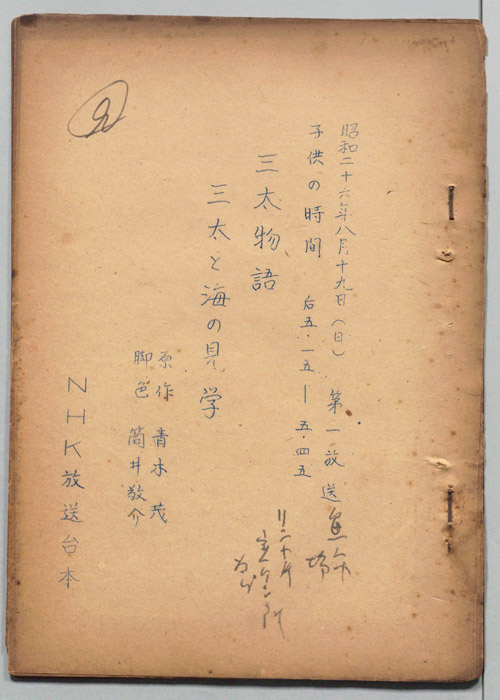 昭和二十六年八月十九日(日) 第一放送
子供の時間 后五・一五ー五・四五
三太物語
三太と海の見学
原作 青木茂
脚色 筒井敬介
NHK放送台本